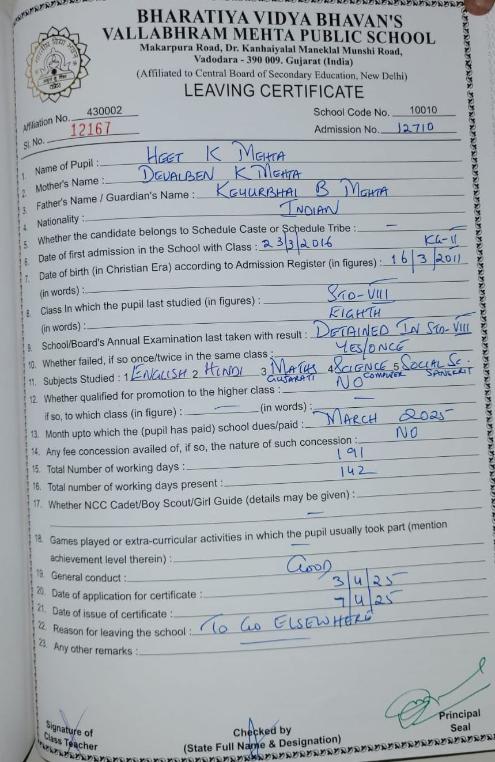 BHARATIYA VIDYA BHAVAN'S
VALLABHRAM MEHTA PUBLIC SCHOOL
Makarpura Road, Dr. Kanhaiyalal Maneklal Munshi Road,
Vadodara - 390 009. Gujarat (India)
(Affiliated to Central Board of Secondary Education, New Delhi)
LEAVING CERTIFICATE
Affiliation No. 430002 School Code No. 10010
Sl. No. 12167 Admission No. 12710
1. Name of Pupil : HEET K MEHTA
2. Mother's Name : DEVALBEN K MEHTA
3. Father's Name / Guardian's Name : KEYURBHAI B MEHTA
4. Nationality : INDIAN
5. Whether the candidate belongs to Schedule Caste or Schedule Tribe : —
6. Date of first admission in the School with Class : 23/3/2016 KG-II
7. Date of birth (in Christian Era) according to Admission Register (in figures) : 16/3/2011
(in words) :
8. Class In which the pupil last studied (in figures) : STD-VIII
(in words) : EIGHTH
9. School/Board's Annual Examination last taken with result : DETAINED IN STD-VIII
10. Whether failed, if so once/twice in the same class : YES/ONCE
11. Subjects Studied : 1 ENGLISH 2 HINDI 3 MATHS 4 SCIENCE 5 SOCIAL SC.
GUJARATI COMPUTER SANSKRIT
12. Whether qualified for promotion to the higher class : NO
if so, to which class (in figure) : — (in words) : —
13. Month upto which the (pupil has paid) school dues/paid : MARCH 2025
14. Any fee concession availed of, if so, the nature of such concession : NO
15. Total Number of working days : 191
16. Total number of working days present : 142
17. Whether NCC Cadet/Boy Scout/Girl Guide (details may be given) :
—
18. Games played or extra-curricular activities in which the pupil usually took part (mention
achievement level therein) : —
19. General conduct : GOOD
20. Date of application for certificate : 3/4/25
21. Date of issue of certificate : 7/4/25
22. Reason for leaving the school : TO GO ELSEWHERE
23. Any other remarks : —
Signature of
Class Teacher
Checked by
(State Full Name & Designation)
Principal
Seal